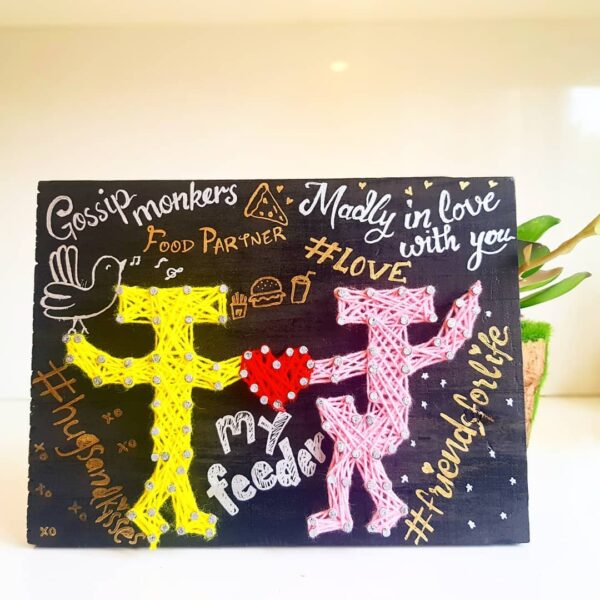 Gossip monkers
FOOD PARTNER
Madly in love
with you
#LOVE
#hugsandkisses
my
feeder
#friendsforlife
xo
xo
xo
xo
xo